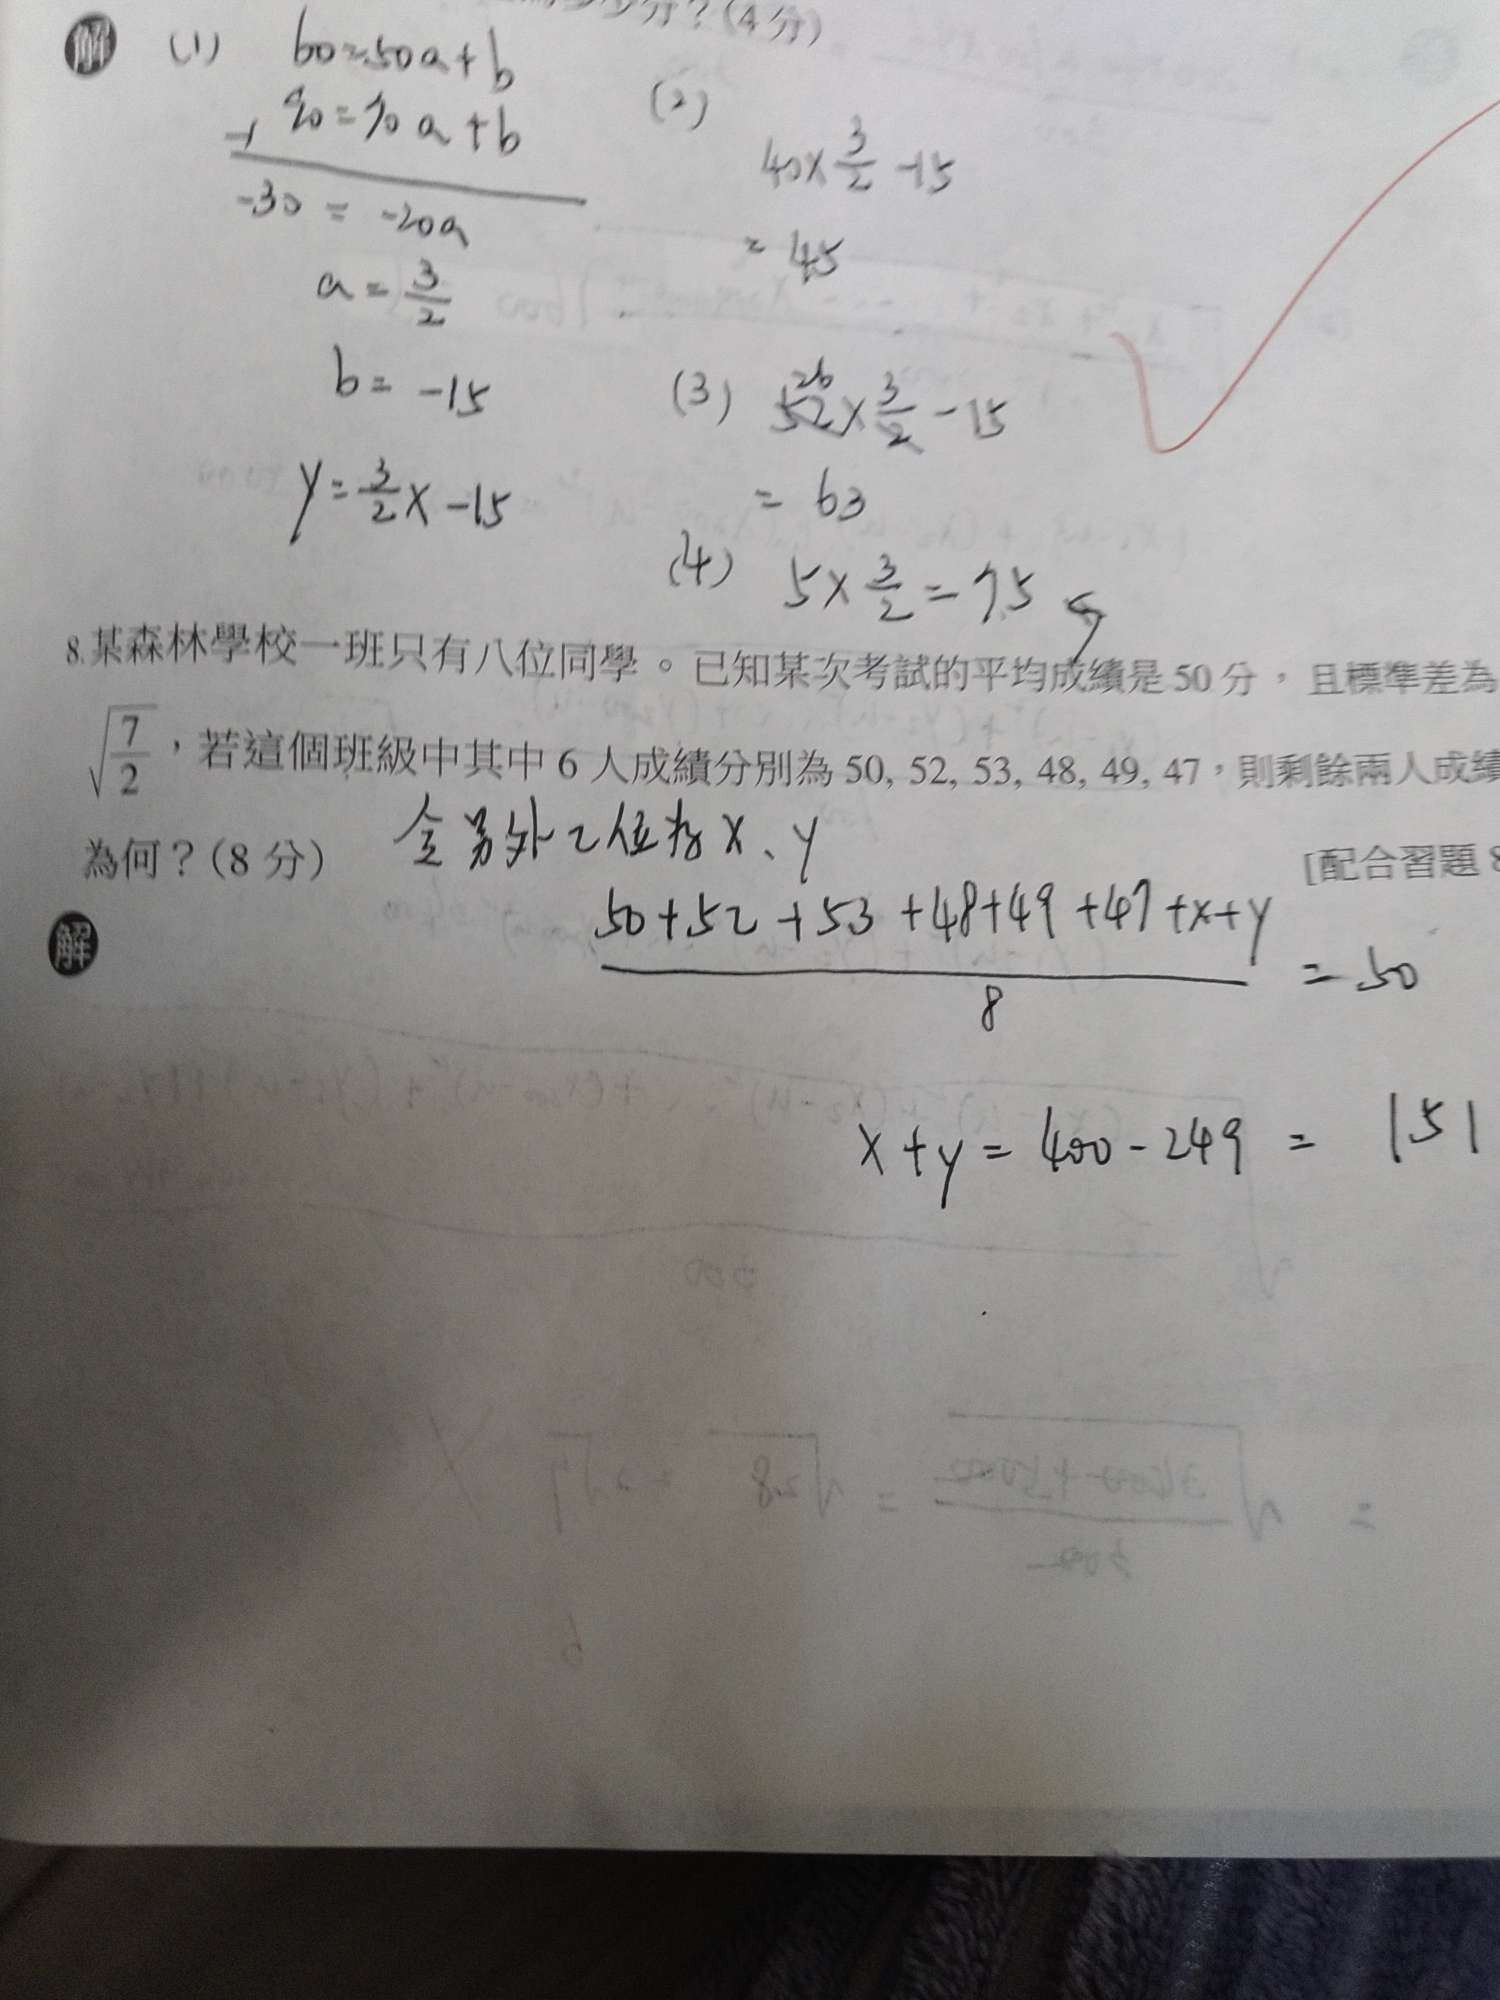 分?(4分)
解 (1) 60=50a+b
-) 90=70a+b
-30 = -20a
a=3/2
b= -15
y=3/2x-15
(2)
40×3/2-15
= 45
(3) 52×3/2-15
26
= 63
(4) 5×3/2=7.5
8.某森林學校一班只有八位同學。已知某次考試的平均成績是50分,且標準差為
√7/2,若這個班級中其中6人成績分別為50, 52, 53, 48, 49, 47,則剩餘兩人成績
為何?(8分) 令另外2位為x、y
[配合習題8
解
50+52+53+48+49+47+x+y
8
= 50
x+y=400-249 = 151